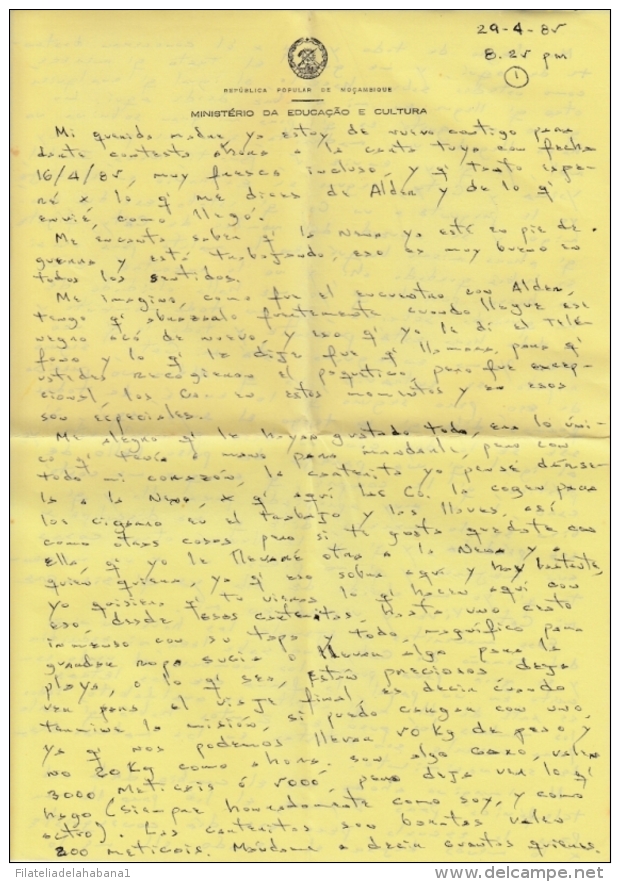 29-4-85
8.25 pm
1
REPÚBLICA POPULAR DE MOÇAMBIQUE
MINISTÉRIO DA EDUCAÇÃO E CULTURA
Mi querida madre, ya estoy de nuevo contigo para
darte contesta ahora a la carta tuya con fecha
16/4/85, muy fresca incluso, y qi tanto espe-
ré x lo qi me dices de Alder y de lo qi
envié, como llegó.
Me encanta saber qi la Nena ya esté en pie de
guerra y está trabajando, eso es muy bueno en
todos los sentidos.
Me imagino, como fue el encuentro con Alder,
tengo qi abrazarlo fuertemente cuando llegue ese
negro acá de nuevo, y eso qi yo le di el telé-
fono y lo qi le dije fue qi llamara, para qi
ustedes recogieran el paquetico, pero fue excep-
cional, los Co. en estos momentos y en esos
son especiales.
Me alegro qi le hayan gustado todo, era lo úni-
co qi tenía a mano para mandarle, pero con
todo mi corazón, la carterita yo pense darse-
la a la Nena, x qi aquí las Co. la cogen para
los cigarro en el trabajo y las llaves, así
como otras cosas pero si te gusta quedate con
ella, qi yo le llevaré otra a la Nena y a
quien quiera, ya qi eso sobra aquí y hay bastante,
yo quisiera qi tu vieras lo qi hacen aquí con
eso, desde esas carteritas, hasta uno cesto
inmenso con su tapa y todo, magnífico para
guardar ropa sucia o llevar algo para la
playa, o lo qi sea, están preciosos deja
ver para el viaje final, es decir cuando
termine la misión, si puedo cargar con uno,
ya qi nos podemos llevar 50 kg de peso y
no 20 kg como ahora. Son algo caro, valen
3000 meticais ó 5000, pero deja ver lo qi
hago (siempre honradamente como soy, y como
actro). Las carteritas son baratas valen
200 meticais. Mándame a decir cuantos quieres.
Filateliadelahabana1
delcampe.net